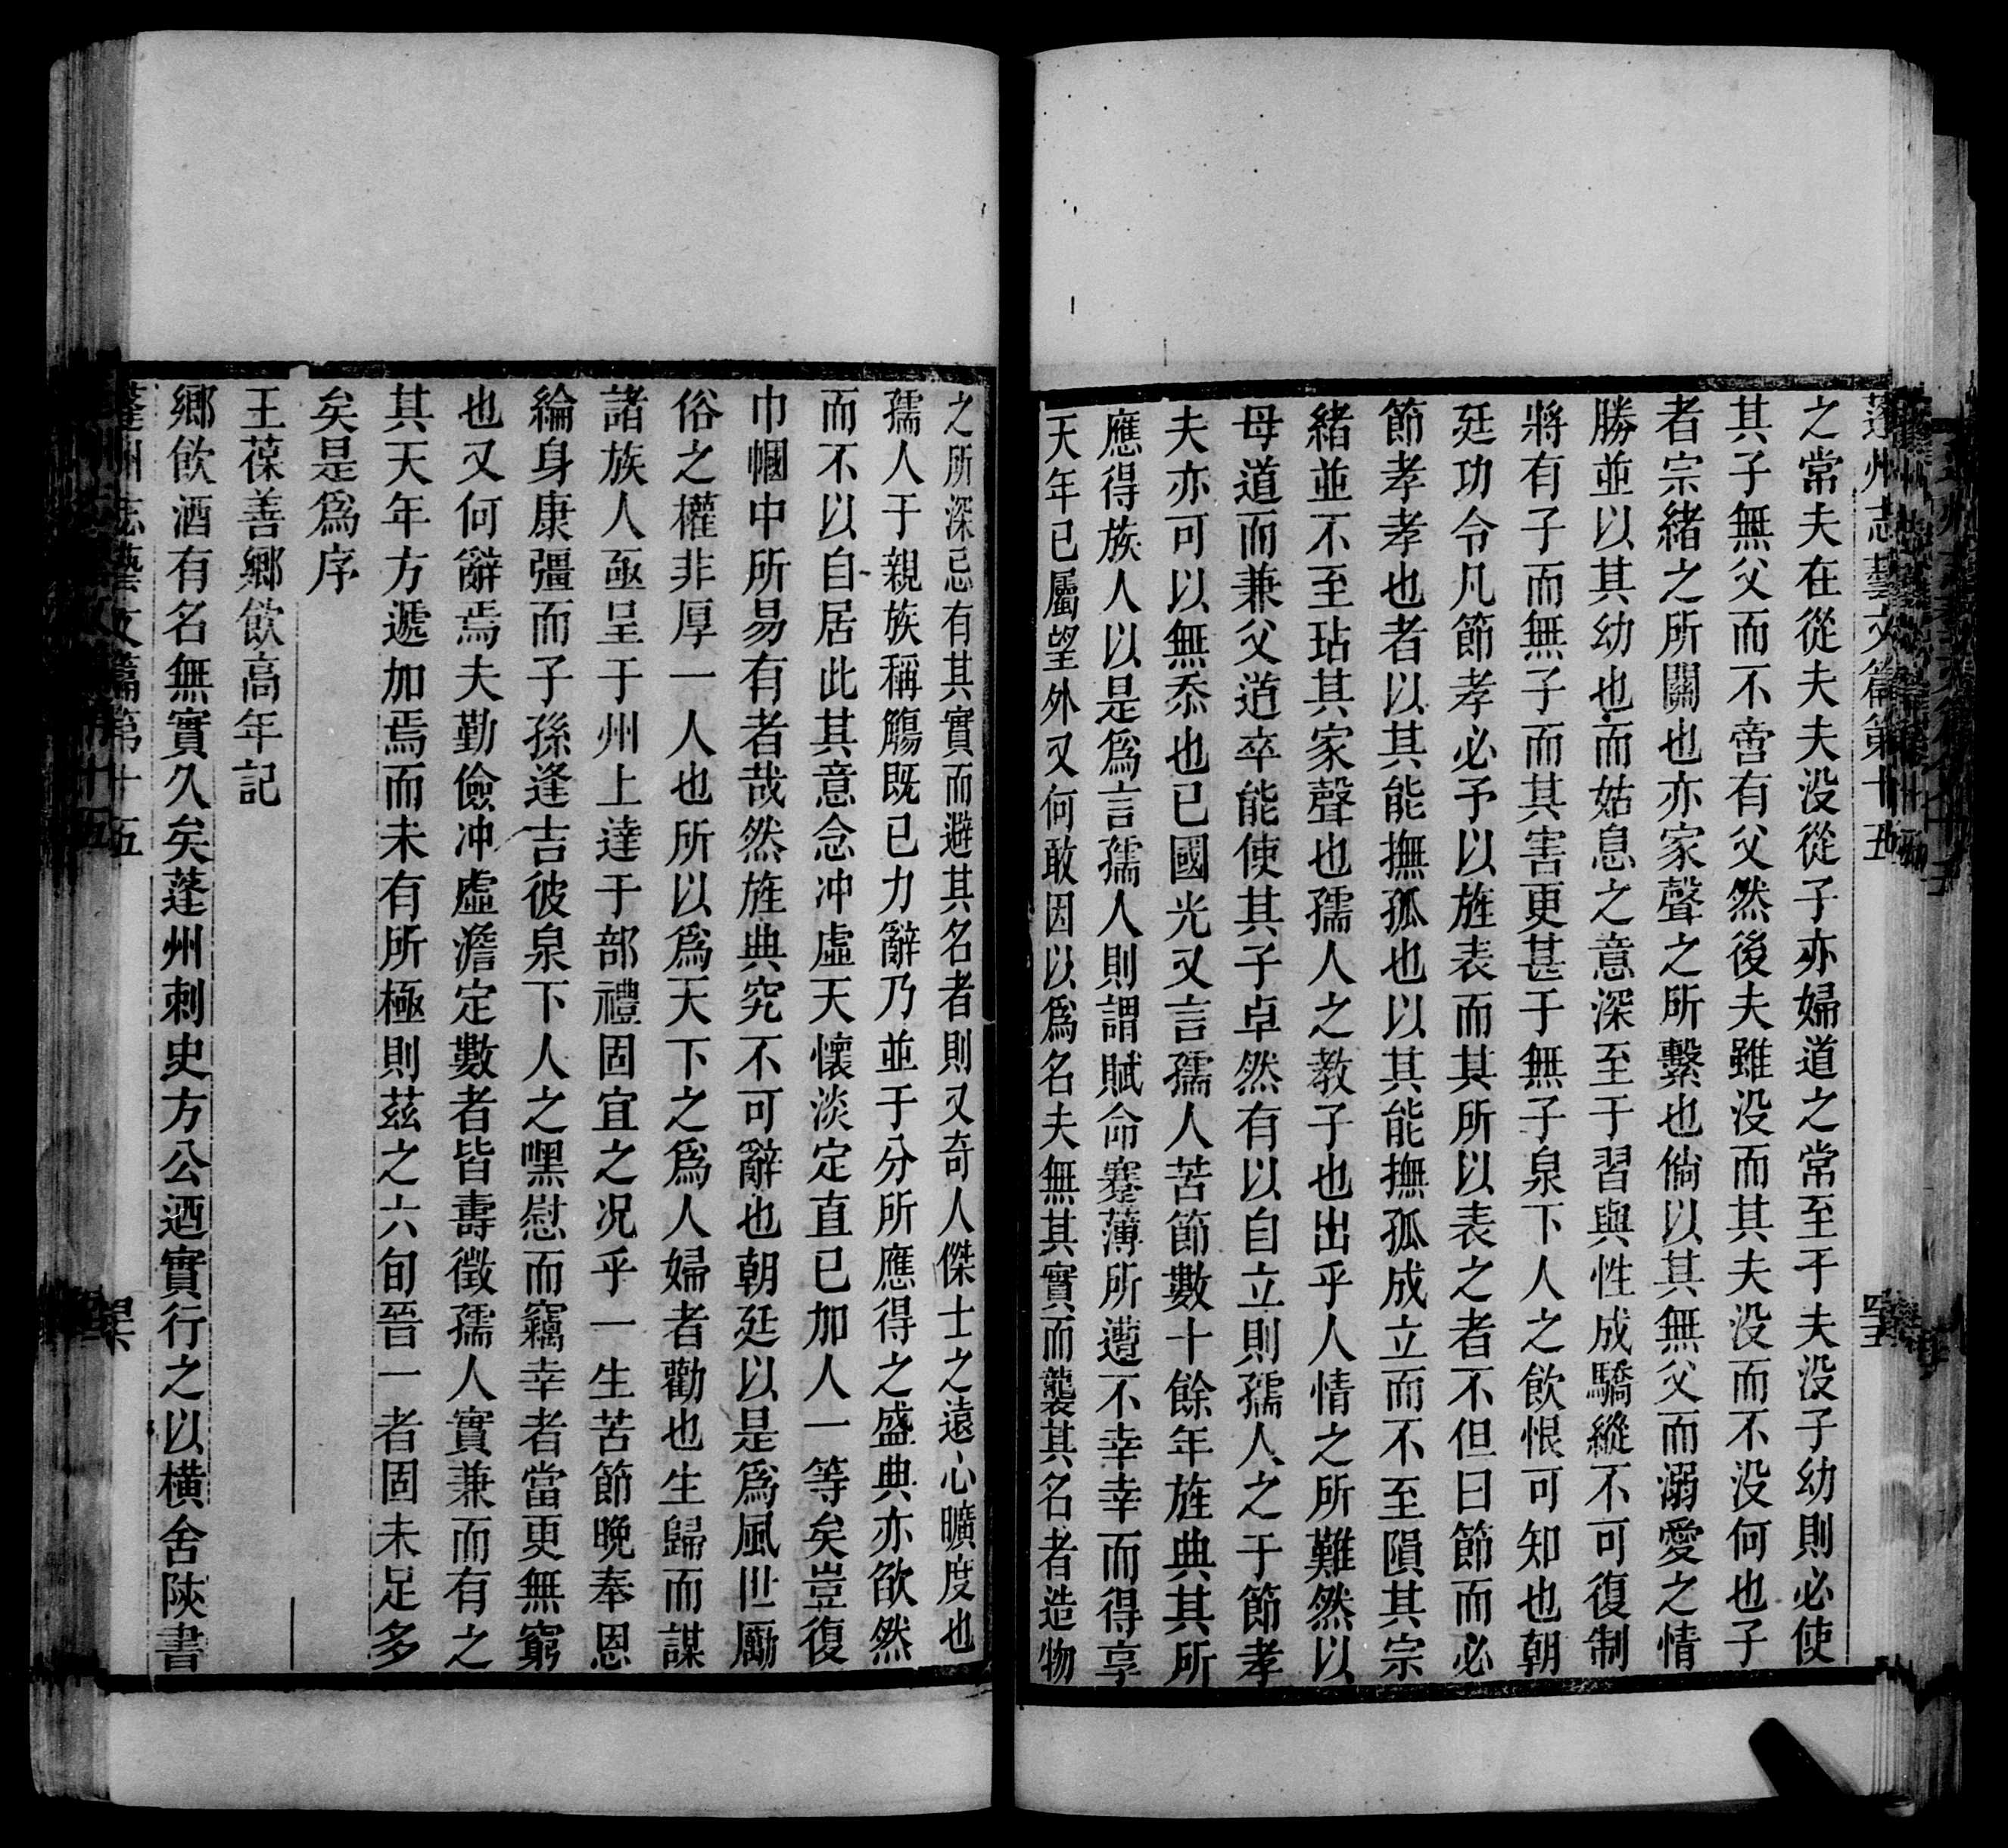 蓬州志藝文篇第十五
之常夫在從夫夫没從子亦婦道之常至于夫没子幼則必使
其子無父而不啻有父然後夫雖没而其夫没而不没何也子
者宗緒之所關也亦家聲之所繫也倘以其無父而溺愛之情
勝並以其幼也而姑息之意深至于習與性成驕縱不可復制
將有子而無子而其害更甚于無子泉下人之飲恨可知也朝
廷功令凡節孝必予以旌表而其所以表之者不但曰節而必
節孝孝也者以其能撫孤也以其能撫孤成立而不至隕其宗
緒並不至玷其家聲也孺人之教子也出乎人情之所難然以
母道而兼父道卒能使其子卓然有以自立則孺人之于節孝
夫亦可以無忝也已國光又言孺人苦節數十餘年旌典其所
應得族人以是爲言孺人則謂賦命蹇薄所遭不幸幸而得享
天年已屬望外又何敢因以爲名夫無其實而襲其名者造物
之所深忌有其實而避其名者則又奇人傑士之遠心曠度也
孺人于親族稱觴既已力辭乃並于分所應得之盛典亦欿然
而不以自居此其意念冲虛天懷淡定直已加人一等矣豈復
巾幗中所易有者哉然旌典究不可辭也朝廷以是爲風世勵
俗之權非厚一人也所以爲天下之爲人婦者勸也生歸而謀
諸族人亟呈于州上達于部禮固宜之况乎一生苦節晚奉恩
綸身康彊而子孫逢吉彼泉下人之嘿慰而竊幸者當更無窮
也又何辭焉夫勤儉冲虛澹定數者皆壽徵孺人實兼而有之
其天年方遞加焉而未有所極則茲之六旬晉一者固未足多
矣是爲序
王葆善鄉飲高年記
鄉飲酒有名無實久矣蓬州刺史方公迺實行之以横舍陝書
蓬州志藝文篇第十五